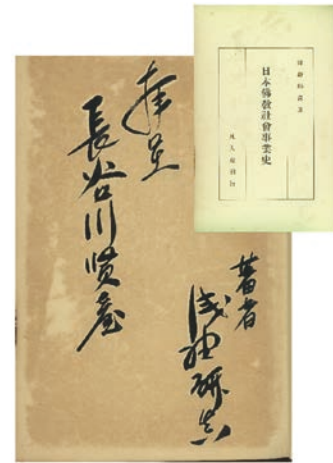 浅野研眞著
日本佛敎社會事業史
凡人社刊行
長谷川
著者
浅野研真